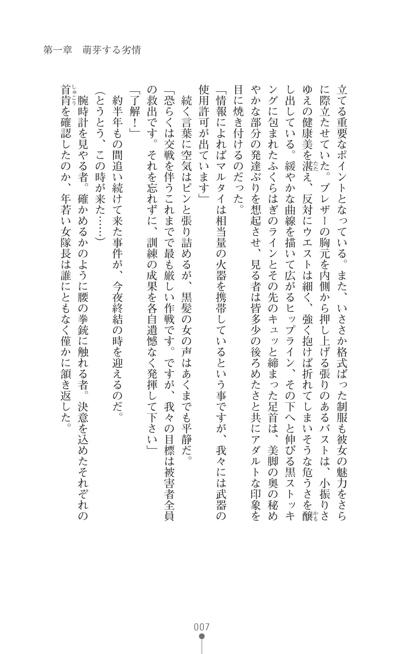 第一章　萌芽する劣情
立てる重要なポイントとなっている。また、いささか格式ばった制服も彼女の魅力をさら
に際立たせていた。ブレザーの胸元を内側から押し上げる張りのあるバストは、小振りさ
ゆえの健康美を湛え、反対にウエストは細く、強く抱けば折れてしまいそうな危うさを醸
し出している。緩やかな曲線を描いて広がるヒップライン、その下へと伸びる黒ストッキ
ングに包まれたふくらはぎのラインとその先のキュッと締まった足首は、美脚の奥の秘め
やかな部分の発達ぶりを想起させ、見る者は皆多少の後ろめたさと共にアダルトな印象を
目に焼き付けるのだった。
「情報によればマルタイは相当量の火器を携帯しているという事ですが、我々には武器の
使用許可が出ています」
続く言葉に空気はピンと張り詰めるが、黒髪の女の声はあくまでも平静だ。
「恐らくは交戦を伴うこれまでで最も厳しい作戦です。ですが、我々の目標は被害者全員
の救出です。それを忘れずに、訓練の成果を各自遺憾なく発揮して下さい」
「了解！」
約半年もの間追い続けて来た事件が、今夜終結の時を迎えるのだ。
（とうとう、この時が来た……）
腕時計を見やる者。確かめるかのように腰の拳銃に触れる者。決意を込めたそれぞれの
首肯を確認したのか、年若い女隊長は誰にともなく僅かに頷き返した。
007